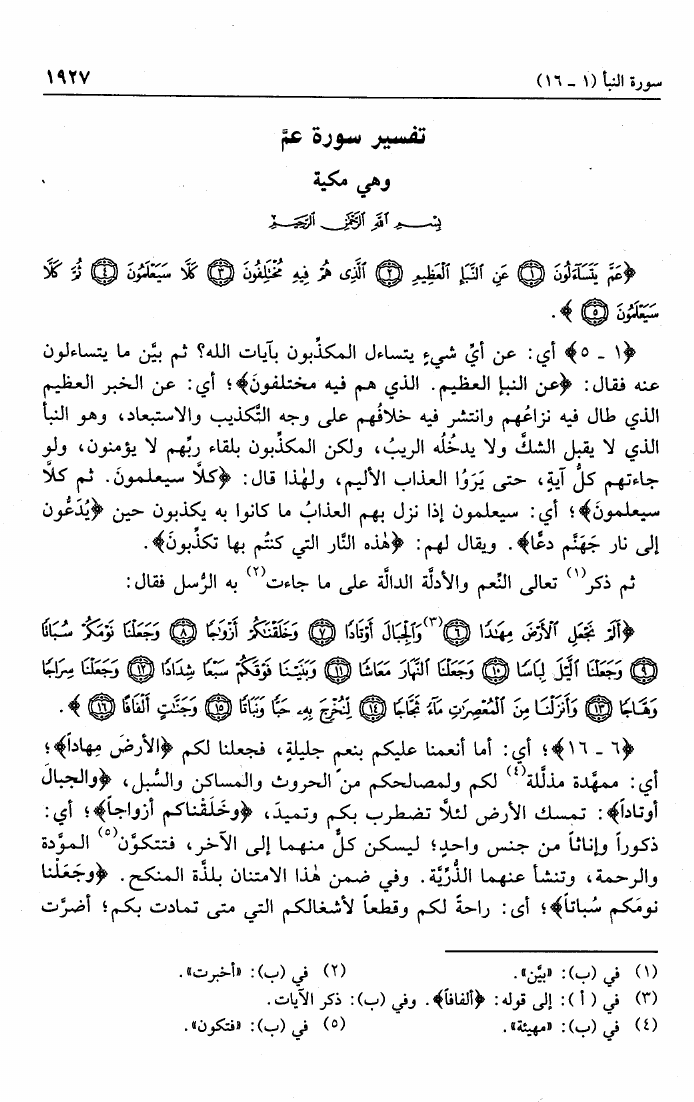 سورة النبأ (١ - ١٦)
١٩٢٧
تفسير سورة عمَّ
وهي مكية
بِسْمِ اللَّهِ الرَّحْمَنِ الرَّحِيمِ
﴿عَمَّ يَتَسَاءَلُونَ ۝١ عَنِ النَّبَإِ الْعَظِيمِ ۝٢ الَّذِي هُمْ فِيهِ مُخْتَلِفُونَ ۝٣ كَلَّا سَيَعْلَمُونَ ۝٤ ثُمَّ كَلَّا
سَيَعْلَمُونَ ۝٥﴾.
﴿١ - ٥﴾ أي: عن أيِّ شيءٍ يتساءل المكذِّبون بآيات الله؟ ثم بيَّن ما يتساءلون
عنه فقال: ﴿عن النبإ العظيم. الذي هم فيه مختلفونَ﴾؛ أي: عن الخبر العظيم
الذي طال فيه نزاعُهم وانتشر فيه خلافُهم على وجه التَّكذيب والاستبعاد، وهو النبأ
الذي لا يقبل الشكَّ ولا يدخُلُه الريبُ، ولكن المكذِّبون بلقاء ربِّهم لا يؤمنون، ولو
جاءتهم كلُّ آيةٍ، حتى يَرَوُا العذاب الأليم، ولهٰذا قال: ﴿كلَّا سيعلمونَ. ثم كلَّا
سيعلمونَ﴾؛ أي: سيعلمون إذا نزل بهم العذابُ ما كانوا به يكذبون حين ﴿يُدَعُّون
إلى نار جَهَنَّم دعًّا﴾. ويقال لهم: ﴿هٰذه النَّار التي كنتُم بها تكذِّبونَ﴾.
ثم ذكر(١) تعالى النِّعم والأدلَّة الدالَّة على ما جاءت(٢) به الرُّسل فقال:
﴿أَلَمْ نَجْعَلِ الْأَرْضَ مِهَادًا ۝٦(٣) وَالْجِبَالَ أَوْتَادًا ۝٧ وَخَلَقْنَاكُمْ أَزْوَاجًا ۝٨ وَجَعَلْنَا نَوْمَكُمْ سُبَاتًا
۝٩ وَجَعَلْنَا اللَّيْلَ لِبَاسًا ۝١٠ وَجَعَلْنَا النَّهَارَ مَعَاشًا ۝١١ وَبَنَيْنَا فَوْقَكُمْ سَبْعًا شِدَادًا ۝١٢ وَجَعَلْنَا سِرَاجًا
وَهَّاجًا ۝١٣ وَأَنْزَلْنَا مِنَ الْمُعْصِرَاتِ مَاءً ثَجَّاجًا ۝١٤ لِنُخْرِجَ بِهِ حَبًّا وَنَبَاتًا ۝١٥ وَجَنَّاتٍ أَلْفَافًا ۝١٦﴾.
﴿٦ - ١٦﴾؛ أي: أما أنعمنا عليكم بنعم جليلةٍ، فجعلنا لكم ﴿الأرضَ مهاداً﴾؛
أي: ممهَّدة مذلَّلة(٤) لكم ولمصالحكم من الحروث والمساكن والسُّبل، ﴿والجبالَ
أوتاداً﴾: تمسك الأرض لئلَّا تضطرب بكم وتميدَ، ﴿وخَلَقْناكم أزواجاً﴾؛ أي:
ذكوراً وإناثاً من جنس واحدٍ؛ ليسكن كلٌّ منهما إلى الآخر، فتتكوَّن(٥) المودَّة
والرحمة، وتنشأ عنهما الذُّرِّيَّة. وفي ضمن هٰذا الامتنان بلذَّة المنكح. ﴿وجَعَلْنا
نومَكم سُباتاً﴾؛ أى: راحةً لكم وقطعاً لأشغالكم التي متى تمادت بكم؛ أضرَّت
(١) في (ب): «بيَّن».
(٢) في (ب): «أخبرت».
(٣) في (أ): إلى قوله: ﴿ألفافاً﴾. وفي (ب): ذكر الآيات.
(٤) في (ب): «مهيئة».
(٥) في (ب): «فتكون».